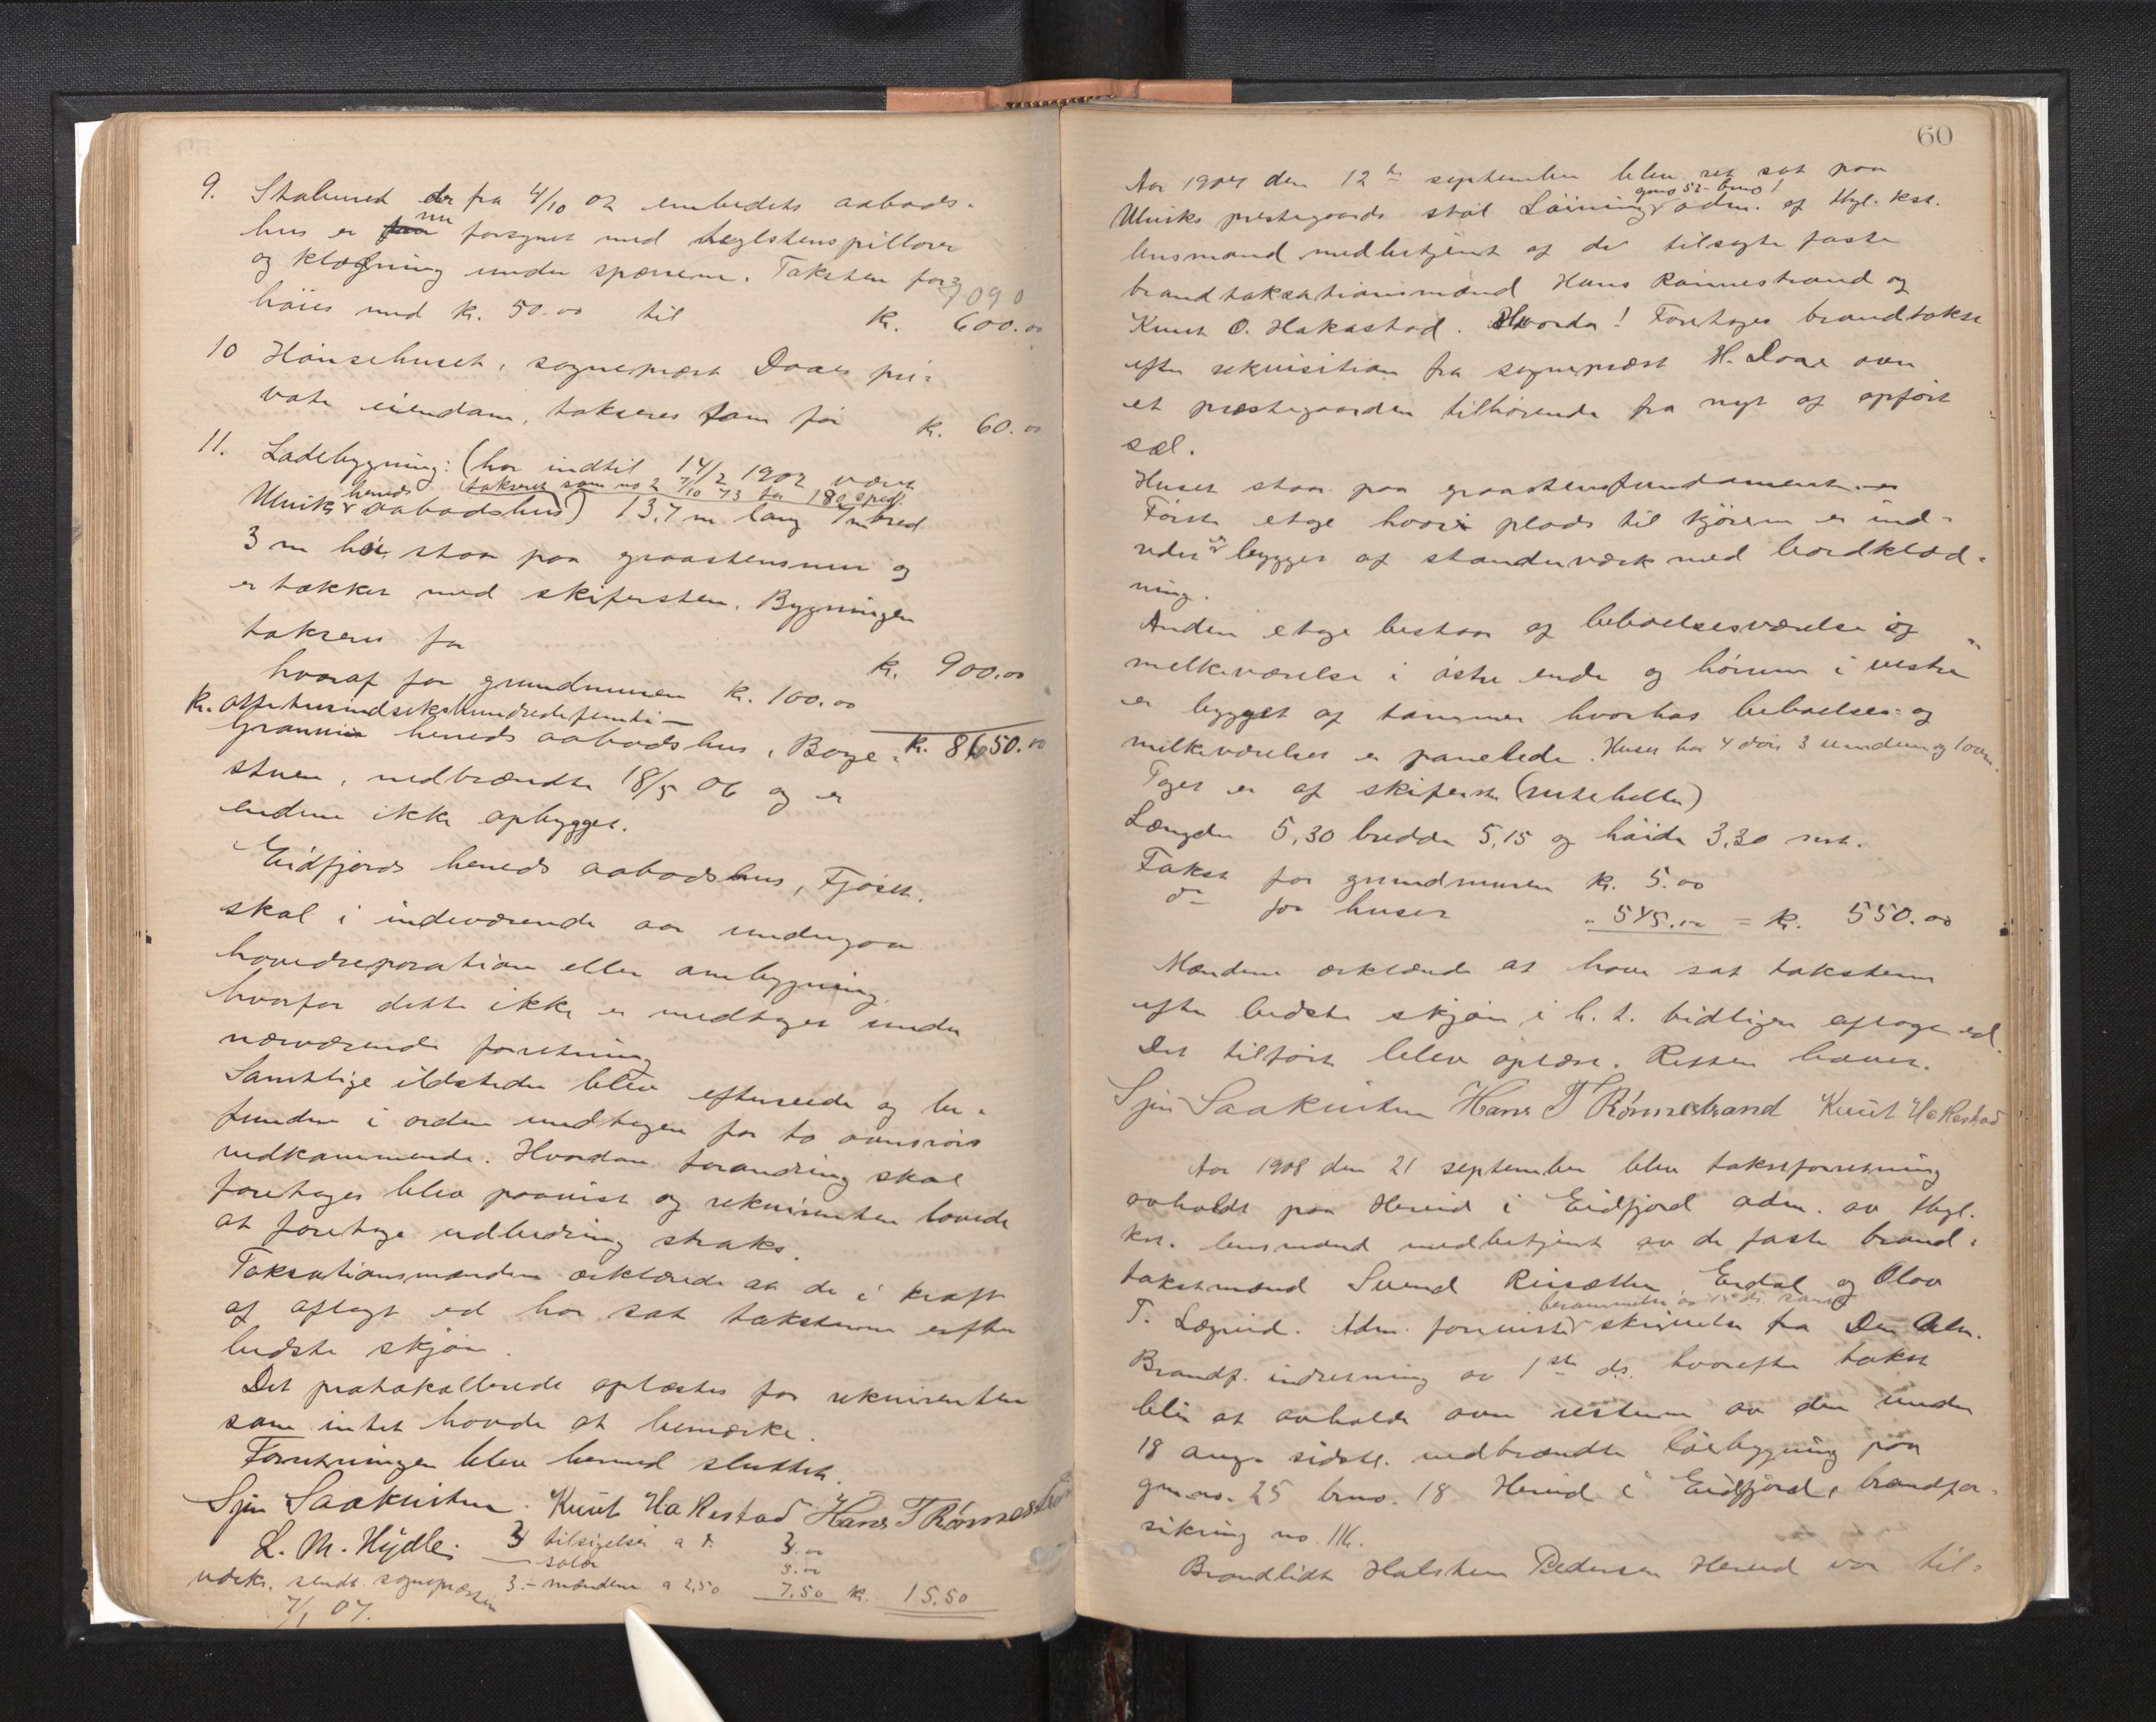 9. Staburet der fra 4/10 02 embedets aabods-
hus er nu forsynet med teglstenspillarer
og klædning under spærrene. Taksten for-
7090
høies med kr. 50.00 til kr. 600.00
10 Hønsehuset, sogneprest Daaes pri-
vate eiendom, takseres som før kr. 60.00
11. Ladebygning: (har indtil 14/2 1902 været
takseret som no 2 7/10 73 for 180 spd.
Ulviks herreds aabodshus) 13,7 m lang 7 m bred
3 m høi staar paa graastensmur og
er tækket med skifersten. Bygningen
takseres for kr. 900.00
hvoraf for grundmuren kr. 100.00
kr. ottetusindsekshundredefemti — kr. 8650.00
Granvin herreds aabodshus, Borge-
stuen, nedbrændte 18/5 06 og er
endnu ikke opbygget.
Eidfjords herreds aabodshus, Fjøset.
skal i indeværende aar undergaa
hovedreparation eller ombygning,
hvorfor dette ikke er medtaget under
nærværende forretning
Samtlige ildsteder blev efterseede og be-
fundne i orden undtagen for to ovnsrørs
vedkommende. Hvordan forandring skal
foretages blev paavist og rekvirenten lovede
at foretage udbedring straks.
Taksationsmændene erklærede at de i kraft
af aflagt ed har sat taksterne efter
bedste skjøn.
Det protokollerede oplæstes for rekvirenten
som intet havde at bemerke.
Forretningen blev hermed sluttet.
Sjur Saakvitne. Knut Hakestad Hans T Rønnestrand
L. M. Hydle. 3 tilsigelser a 1. 3.00
salær 5.00
3 - mændene a 2,50 7.50 kr. 15.50
udskr. sendt sognepresten
7/1 07.
60
Aar 1907 den 12te september blev ret sat paa
Ulviks prestegaards støl Løining gno 52 bno 1 adm. af Hgl. kst.
lensmand medbetjent af de tilsagte faste
brandtaksationsmænd Hans Rønnestrand og
Knut O. Hakastad. Hvorda! Foretages brandtakst
efter rekvisition fra sogneprest H. Daae over
et prestegaarden tilhørende fra nyt af opført
sæl.
Huset staar paa graastensfundament
Første etage hvori plads til kjørene er ind-
redet er bygget af standerverk med bordklæd-
ning.
Anden etage bestaar af beboelsesværelse og
melkeværelse i østre ende og hørum i vestre
er bygget af tømmer hvorhos beboelses- og
melkeværelset er panelede. Huset har 4 døre 3 vinduer og 1 ovn.
Taget er af skifersten (ruteheller)
Længden 5,30 bredde 5,15 og høide 3,30 mt.
Takst for grundmuren kr. 5.00
do for huset " 545.00 = kr. 550.00
Mændene erklærede at have sat taksterne
efter bedste skjøn i h. t. tidligere aflagt ed.
Det tilførte blev oplæst. Retten hævet.
Sjur Saakvitne Hans T Rønnestrand Knut Hakestad
Aar 1908 den 21 september blev takstforretning
avholdt paa Hereid i Eidfjord adm. av Hgl.
kst. lensmand medbetjent av de faste brand-
takstmænd Svend Reisæther Erdal og Olav
T. Lægreid. Adm. foreviste berammelse av 15 ds. samt skrivelse fra Den Alm.
Brandf. indretning av 1ste ds. hvorefter takst
blir at avholde over resterne av den under
18 aug. sidstl. nedbrændte løebygning paa
gno. 25 bno. 18 Hereid i Eidfjord, brandfor-
sikring no 116.
Brandlidte Halsten Pedersen Hereid var til-